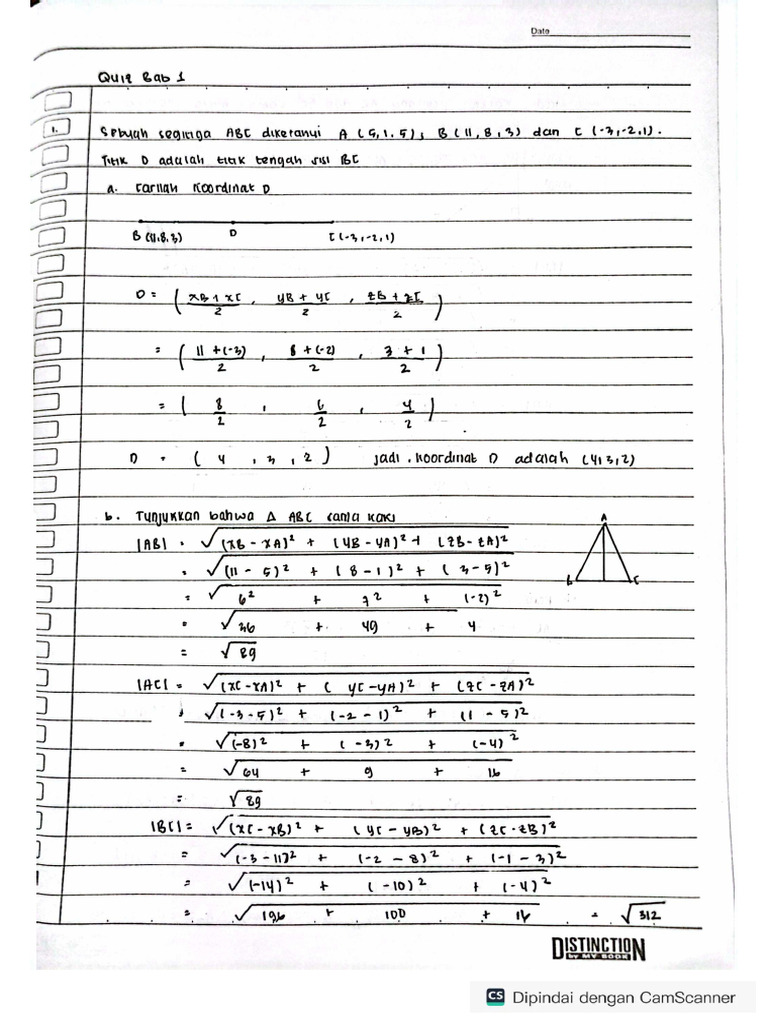 Date
Quiz Bab 1
1. Sebuah segitiga ABC diketahui A (5,1,5), B (11,8,3) dan C (-3,-2,1).
Titik D adalah titik tengah sisi BC
a. Carilah Koordinat D
B (11,8,3) D C (-3,-2,1)
D = ( xB + xC / 2 , yB + yC / 2 , zB + zC / 2 )
= ( 11 + (-3) / 2 , 8 + (-2) / 2 , 3 + 1 / 2 )
= ( 8/2 , 6/2 , 4/2 )
D = ( 4 , 3 , 2 ) Jadi, Koordinat D adalah (4,3,2)
b. Tunjukkan bahwa Δ ABC sama kaki
A
|AB| = √(xB - xA)² + (yB - yA)² + (zB - zA)²
= √(11 - 5)² + (8 - 1)² + (3 - 5)²
B C
= √6² + 7² + (-2)²
= √36 + 49 + 4
= √89
|AC| = √(xC - xA)² + (yC - yA)² + (zC - zA)²
= √(-3 - 5)² + (-2 - 1)² + (1 - 5)²
= √(-8)² + (-3)² + (-4)²
= √64 + 9 + 16
= √89
|BC| = √(xC - xB)² + (yC - yB)² + (zC - zB)²
= √(-3 - 11)² + (-2 - 8)² + (-1 - 3)²
= √(-14)² + (-10)² + (-4)²
= √196 + 100 + 16 = √312
DISTINCTION
by MY BOOK
CS Dipindai dengan CamScanner